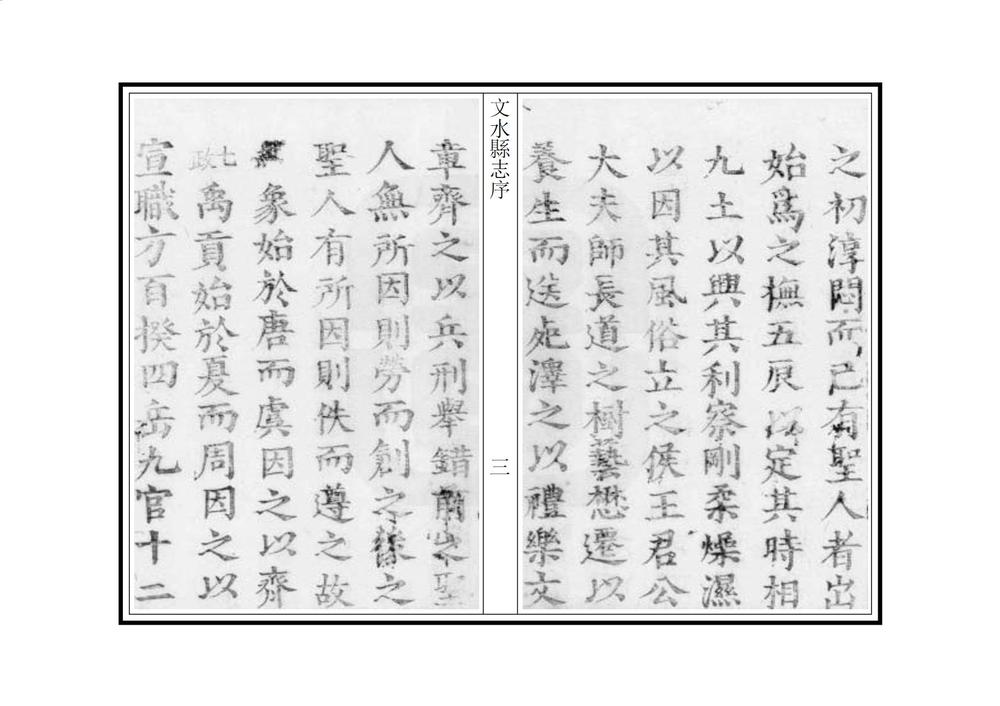 之初淳悶而已有聖人者出
始爲之撫五辰以定其時相
九土以興其利察剛柔燥濕
以因其風俗立之侯王君公
大夫師長道之樹藝懋遷以
養生而送死澤之以禮樂文
文水縣志序
三
章齊之以兵刑舉錯前之聖
人無所因則勞而創之後之
聖人有所因則佚而遵之故
象始於唐而虞因之以齊
七政禹貢始於夏而周因之以
宣職方百揆四岳九官十二